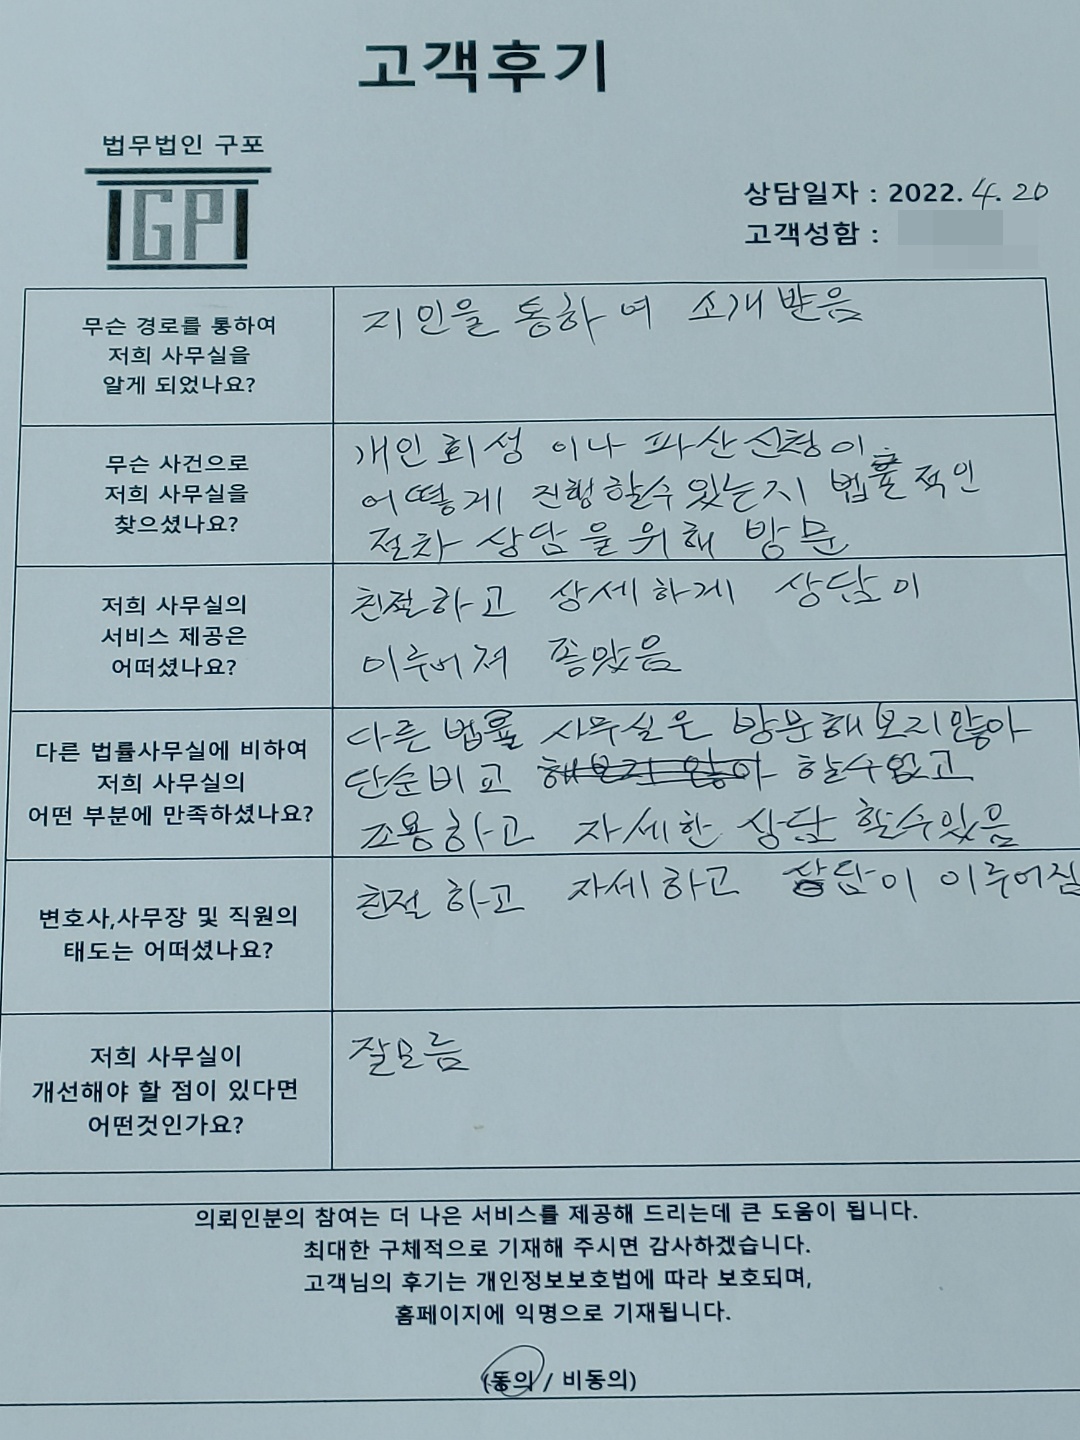 고객후기
법무법인 구포
GP
상담일자 : 2022. 4. 20
고객성함 :
무슨 경로를 통하여
저희 사무실을
알게 되었나요?
지인을 통하여 소개받음
무슨 사건으로
저희 사무실을
찾으셨나요?
개인회생 이나 파산신청이
어떻게 진행할수있는지 법률적인
절차 상담을위해 방문
저희 사무실의
서비스 제공은
어떠셨나요?
친절하고 상세하게 상담이
이루어져 좋았음
다른 법률사무실에 비하여
저희 사무실의
어떤 부분에 만족하셨나요?
다른 법률 사무실은 방문해보지않아
단순비교 해보지 않아 할수없고
조용하고 자세한 상담 할수있음
변호사,사무장 및 직원의
태도는 어떠셨나요?
친절하고 자세하고 상담이 이루어짐
저희 사무실이
개선해야 할 점이 있다면
어떤것인가요?
잘모름
의뢰인분의 참여는 더 나은 서비스를 제공해 드리는데 큰 도움이 됩니다.
최대한 구체적으로 기재해 주시면 감사하겠습니다.
고객님의 후기는 개인정보보호법에 따라 보호되며,
홈페이지에 익명으로 기재됩니다.
(동의 / 비동의)